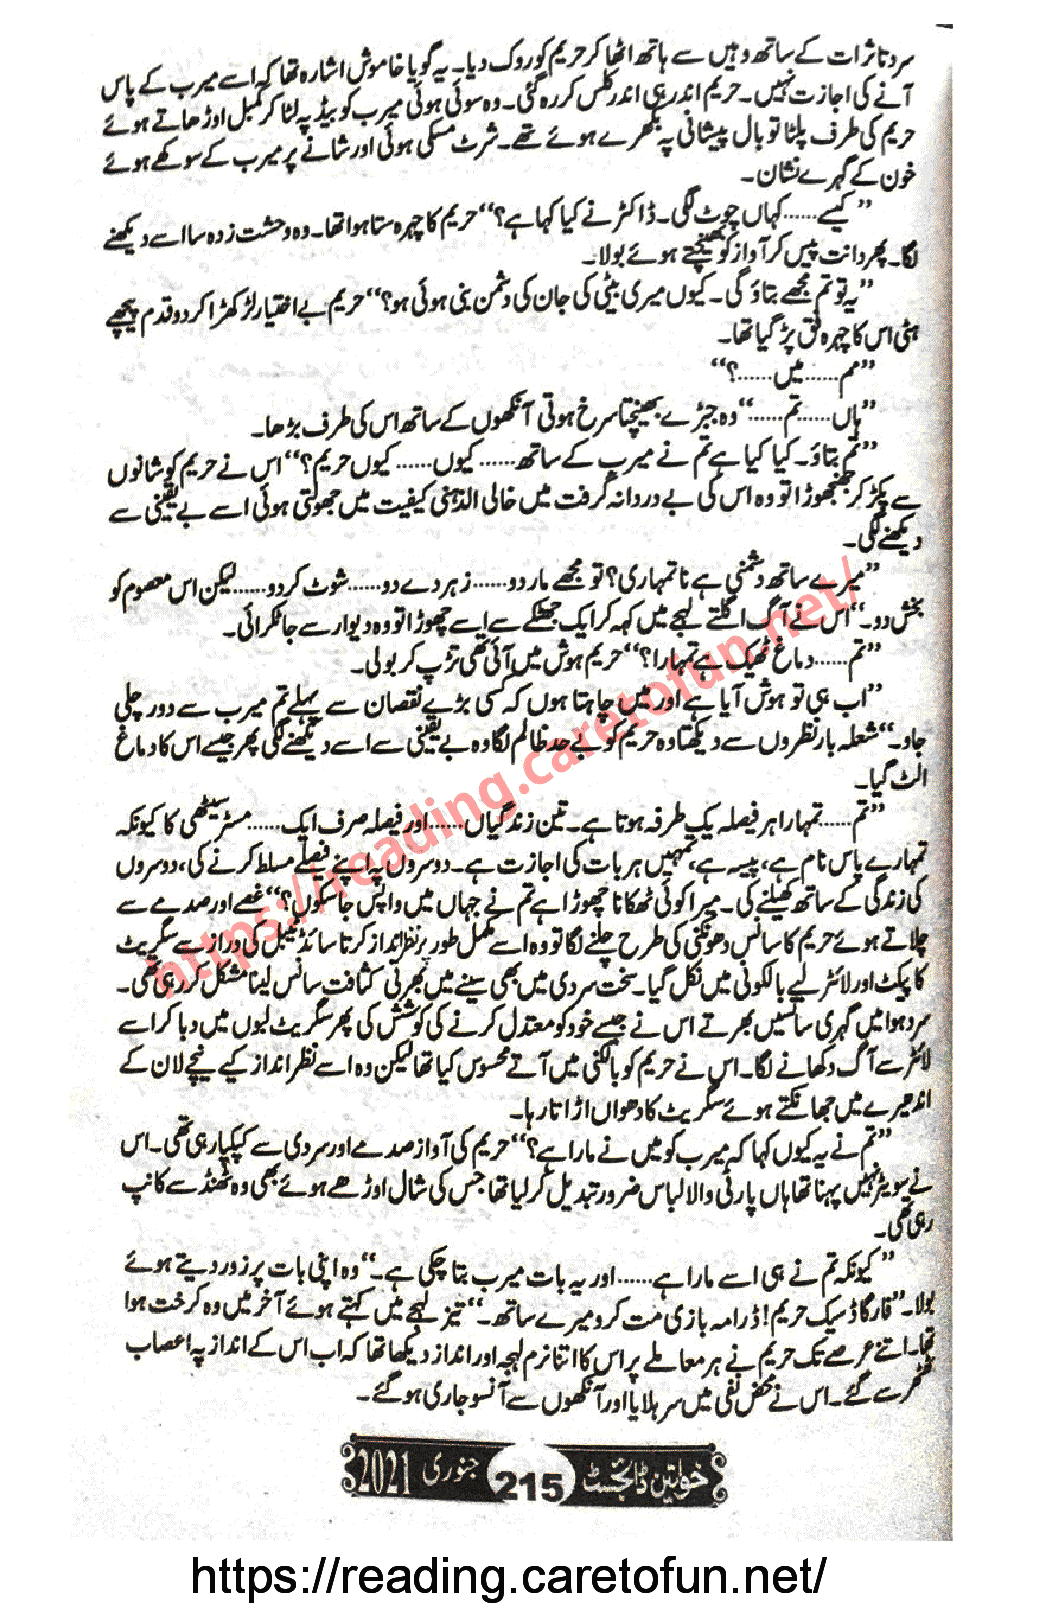 سرد تاثرات کے ساتھ وہیں سے ہاتھ اٹھا کر حریم کو روک دیا۔ یہ گویا خاموش اشارہ تھا کہ اسے میرب کے پاس
آنے کی اجازت نہیں۔ حریم اندر ہی اندر کلس کر رہ گئی۔ وہ سوئی ہوئی میرب کو بیڈ پہ لٹا کر کمبل اوڑھاتے ہوئے
حریم کی طرف پلٹا تو بال پیشانی پہ بکھرے ہوئے تھے۔ شرٹ مسکی ہوئی اور شانے پر میرب کے سوکھے ہوئے
خون کے گہرے نشان۔
”کیسے...... کہاں چوٹ لگی۔ ڈاکٹر نے کیا کہا ہے؟“ حریم کا چہرہ ستا ہوا تھا۔ وہ وحشت زدہ سا اسے دیکھنے
لگا۔ پھر دانت پیس کر آواز کو بھینچتے ہوئے بولا۔
”یہ تو تم مجھے بتاؤ گی۔ کیوں میری بیٹی کی جان کی دشمن بنی ہوئی ہو؟“ حریم بے اختیار لڑکھڑا کر دو قدم پیچھے
ہٹی اس کا چہرہ فق پڑ گیا تھا۔
”مم...... میں......؟“
”ہاں..... تم......“ وہ جبڑے بھینچتا سرخ ہوتی آنکھوں کے ساتھ اس کی طرف بڑھا۔
”تم بتاؤ۔ کیا کیا ہے تم نے میرب کے ساتھ...... کیوں...... کیوں حریم؟“ اس نے حریم کو شانوں
سے پکڑ کر جھنجھوڑا تو وہ اس کی بے دردانہ گرفت میں خالی الذہنی کیفیت میں جھولتی ہوئی اسے بے یقینی سے
دیکھنے لگی۔
”میرے ساتھ دشمنی ہے نا تمہاری؟ تو مجھے مار دو...... زہر دے دو...... شوٹ کر دو...... لیکن اس معصوم کو
بخش دو۔“ اس نے آگ اگلتے لہجے میں کہہ کر ایک جھٹکے سے اسے چھوڑا تو وہ دیوار سے جا ٹکرائی۔
”تم...... دماغ ٹھیک ہے تمہارا؟“ حریم ہوش میں آئی تھی تڑپ کر بولی۔
”اب ہی تو ہوش آیا ہے اور میں چاہتا ہوں کہ کسی بڑے نقصان سے پہلے تم میرب سے دور چلی
جاو۔“ شعلہ بار نظروں سے دیکھتا وہ حریم کو بے حد ظالم لگا وہ بے یقینی سے اسے دیکھنے لگی پھر جیسے اس کا دماغ
الٹ گیا۔
”تم...... تمہارا ہر فیصلہ یک طرفہ ہوتا ہے۔ تین زندگیاں...... اور فیصلہ صرف ایک...... مسٹر سیٹھی کا کیونکہ
تمہارے پاس نام ہے، پیسہ ہے، تمہیں ہر بات کی اجازت ہے۔ دوسروں پہ اپنے فیصلے مسلط کرنے کی، دوسروں
کی زندگی کے ساتھ کھیلنے کی۔ میرا کوئی ٹھکانا چھوڑا ہے تم نے جہاں میں واپس جا سکوں؟“ غصے اور صدمے سے
چلاتے ہوئے حریم کا سانس دھونکنی کی طرح چلنے لگا تو وہ اسے مکمل طور پر نظر انداز کرتا سائڈ ٹیبل کی دراز سے سگریٹ
کا پیکٹ اور لائٹر لیے بالکونی میں نکل گیا۔ سخت سردی میں بھی سینے میں بھرتی کثافت سانس لینا مشکل کر رہی تھی۔
سرد ہوا میں گہری سانسیں بھرتے اس نے جیسے خود کو معتدل کرنے کی کوشش کی پھر سگریٹ لبوں میں دبا کر اسے
لائٹر سے آگ دکھانے لگا۔ اس نے حریم کو بالکنی میں آتے محسوس کیا تھا لیکن وہ اسے نظر انداز کیے نیچے لان کے
اندھیرے میں جھانکتے ہوئے سگریٹ کا دھواں اڑاتا رہا۔
”تم نے یہ کیوں کہا کہ میرب کو میں نے مارا ہے؟“ حریم کی آواز صدمے اور سردی سے کپکپا رہی تھی۔ اس
نے سویٹر نہیں پہنا تھا ہاں پارٹی والا لباس ضرور تبدیل کر لیا تھا جس کی شال اوڑھے ہوئے بھی وہ ٹھنڈ سے کانپ
رہی تھی۔
”کیونکہ تم نے ہی اسے مارا ہے...... اور یہ بات میرب بتا چکی ہے۔“ وہ اپنی بات پر زور دیتے ہوئے
بولا۔ ”فار گاڈ سیک حریم! ڈرامہ بازی مت کرو میرے ساتھ۔“ تیز لہجے میں کہتے ہوئے آخر میں وہ کرخت ہوا
تھا۔ اتنے عرصے تک حریم نے ہر معاملے پر اس کا اتنا نرم لہجہ اور انداز دیکھا تھا کہ اب اس کے انداز پہ اعصاب
ٹھٹھر سے گئے۔ اس نے محض نفی میں سر ہلایا اور آنکھوں سے آنسو جاری ہو گئے۔
خواتین ڈائجسٹ 215 جنوری 2021
https://reading.caretofun.net/
https://reading.caretofun.net/